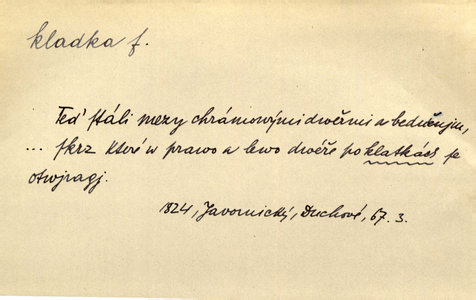 kladka f.
Teď stáli mezy chrámowými dwěrmi a bedněnjm,
... skrz které w prawo a lewo dwéře po klatkách se
otwjragj.
1824, Javornický, Duchové, 67. 3.